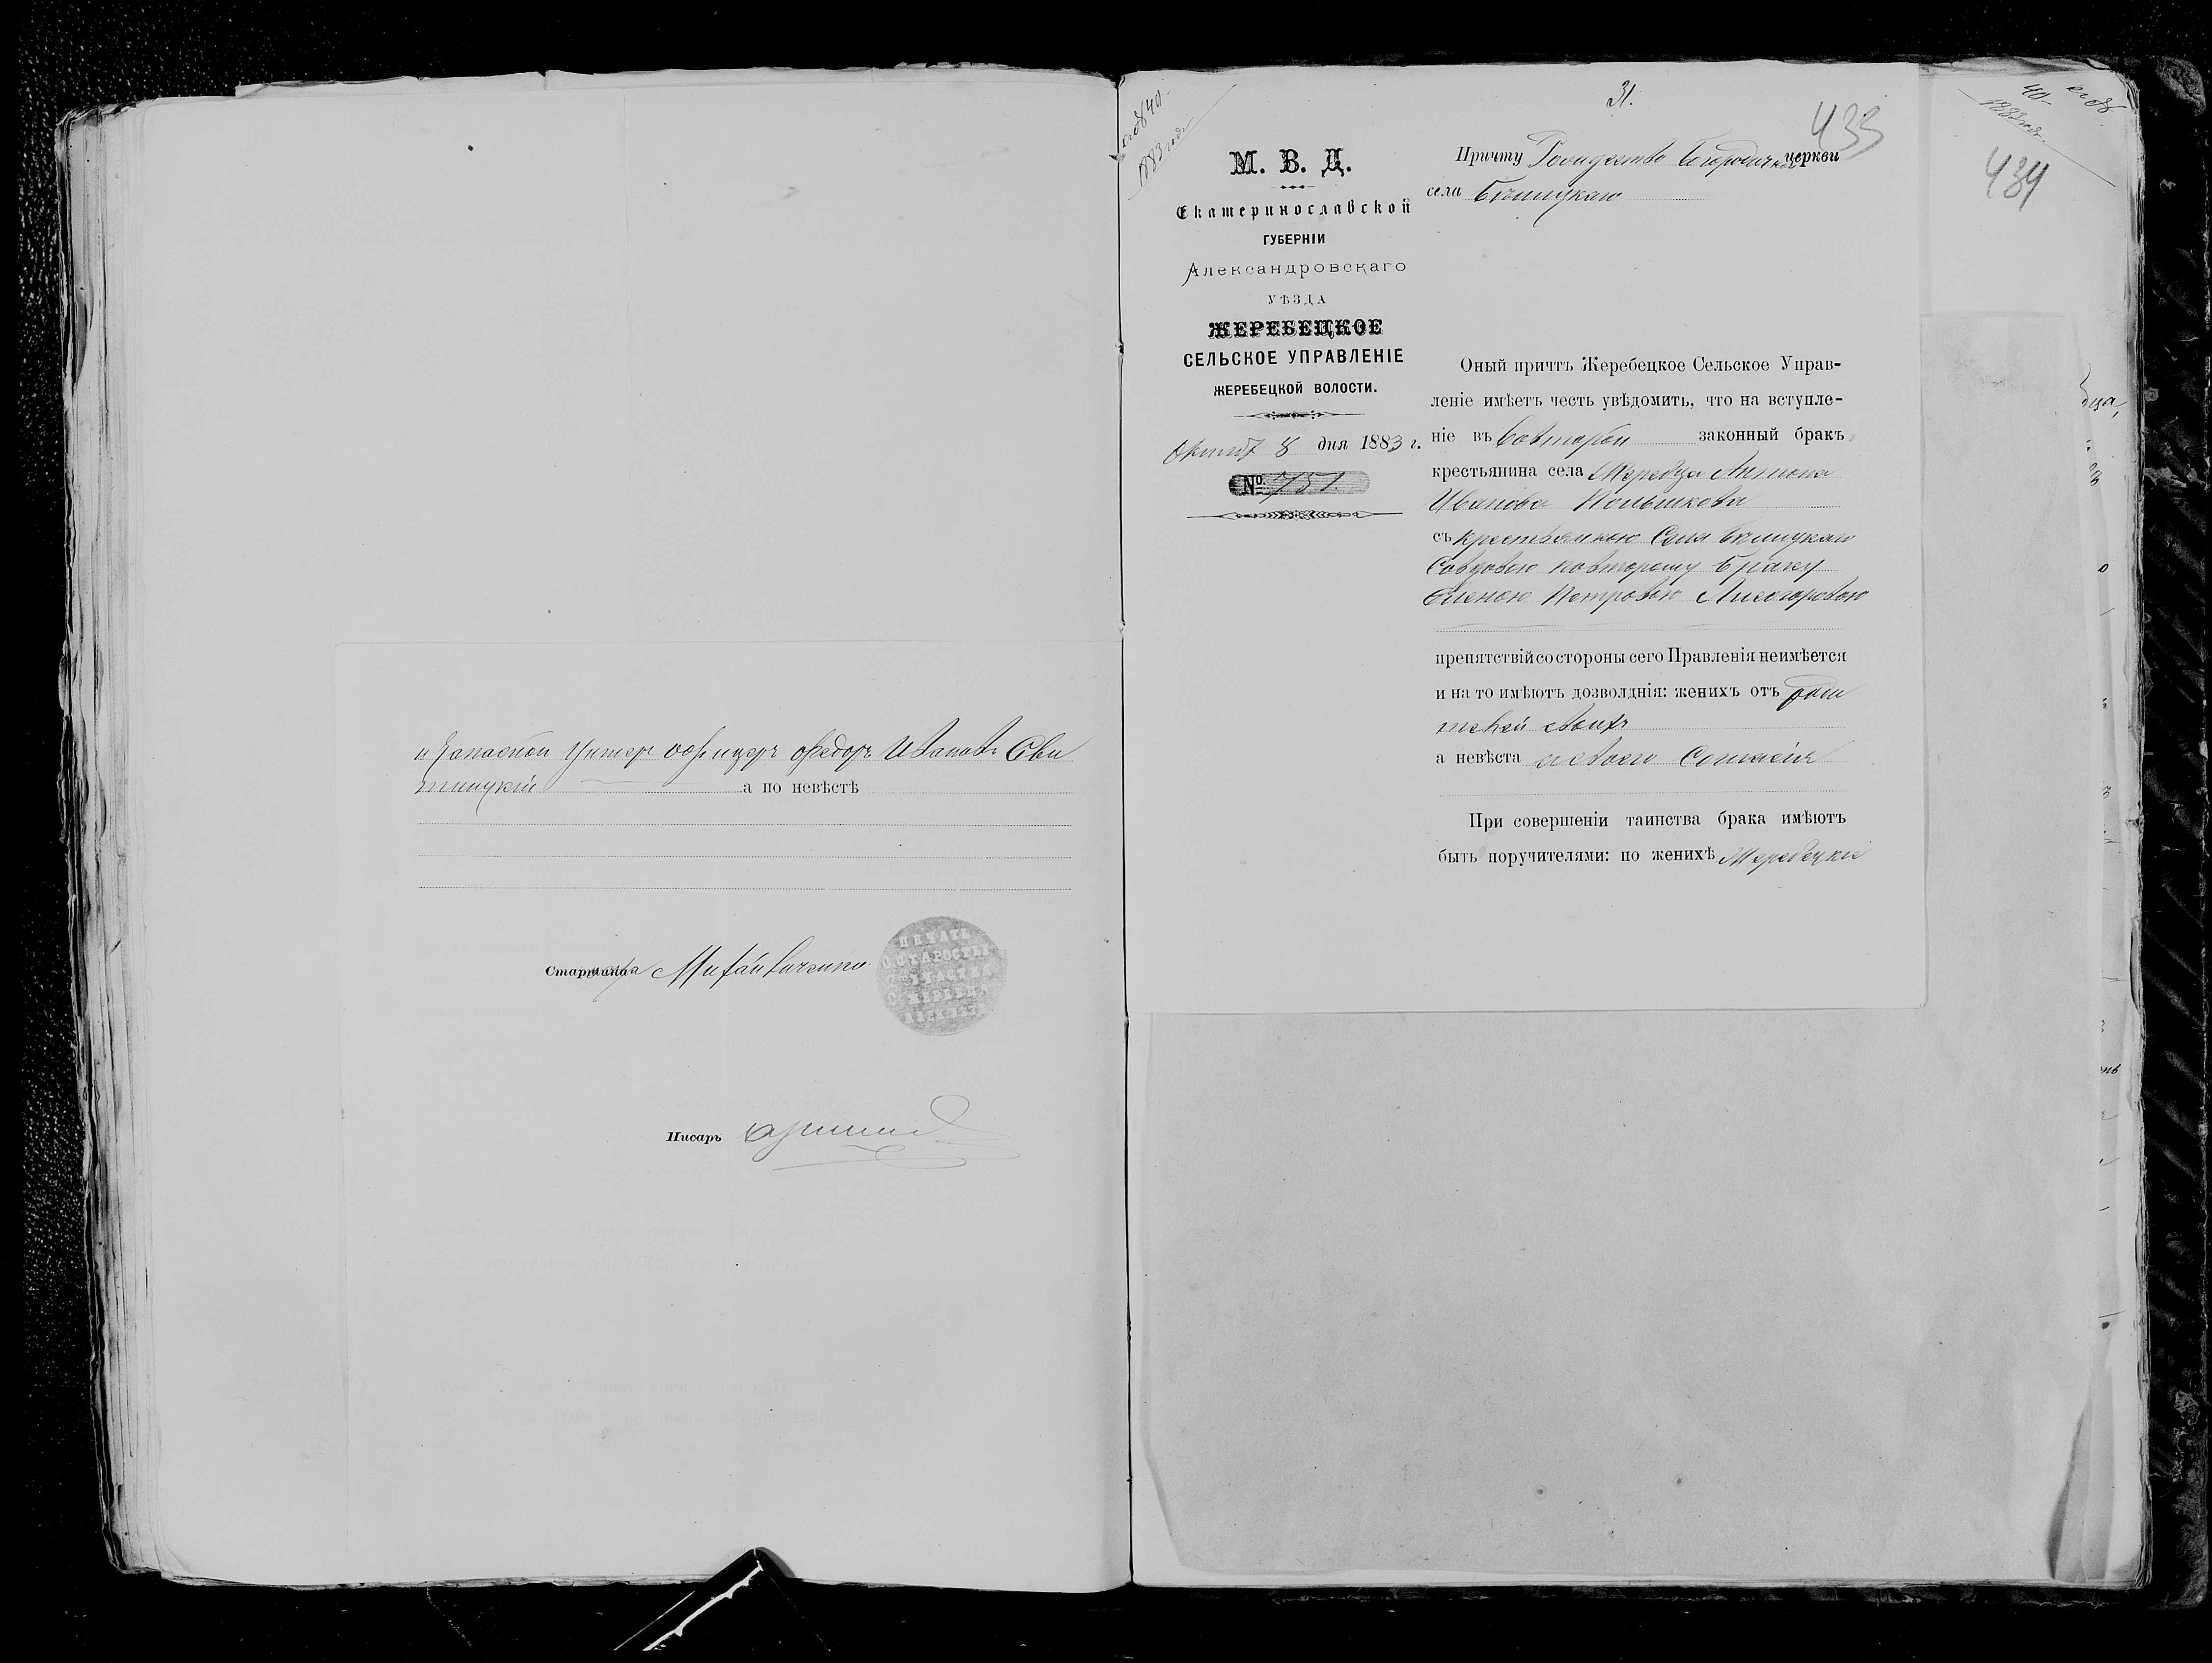 и запасной Унтеръ офицеръ Федоръ Ивановъ Сви
тицкій а по невѣстѣ
Старшина
ПЕЧАТЬ
СТАРОСТЫ
УЧАСТКА
С. ЖЕРЕБЦ
Писарь
40
1883 года
М. В. Д.
Екатеринославской
ГУБЕРНІИ
Александровскаго
УѢЗДА
ЖЕРЕБЕЦКОЕ
СЕЛЬСКОЕ УПРАВЛЕНІЕ
ЖЕРЕБЕЦКОЙ ВОЛОСТИ.
8 дня 1883 г.
№ 751.
31.
433
Причту Рождество Богородичной церкви
села
Оный причтъ Жеребецкое Сельское Управ-
леніе имѣетъ честь увѣдомить, что на вступле-
ніе въ законный бракъ
крестьянина села Жеребца Антона
Иванова
съ крестьянкою Села
повторому браку
Еленою Петровою Лисогоровою
препятствій со стороны сего Правленія неимѣется
и на то имѣютъ дозволднія: женихъ отъ роди
телей своихъ
а невѣста своего Согласія
При совершеніи таинства брака имѣютъ
быть поручителями: по женихѣ Жеребецкіе
40
1883 года
434